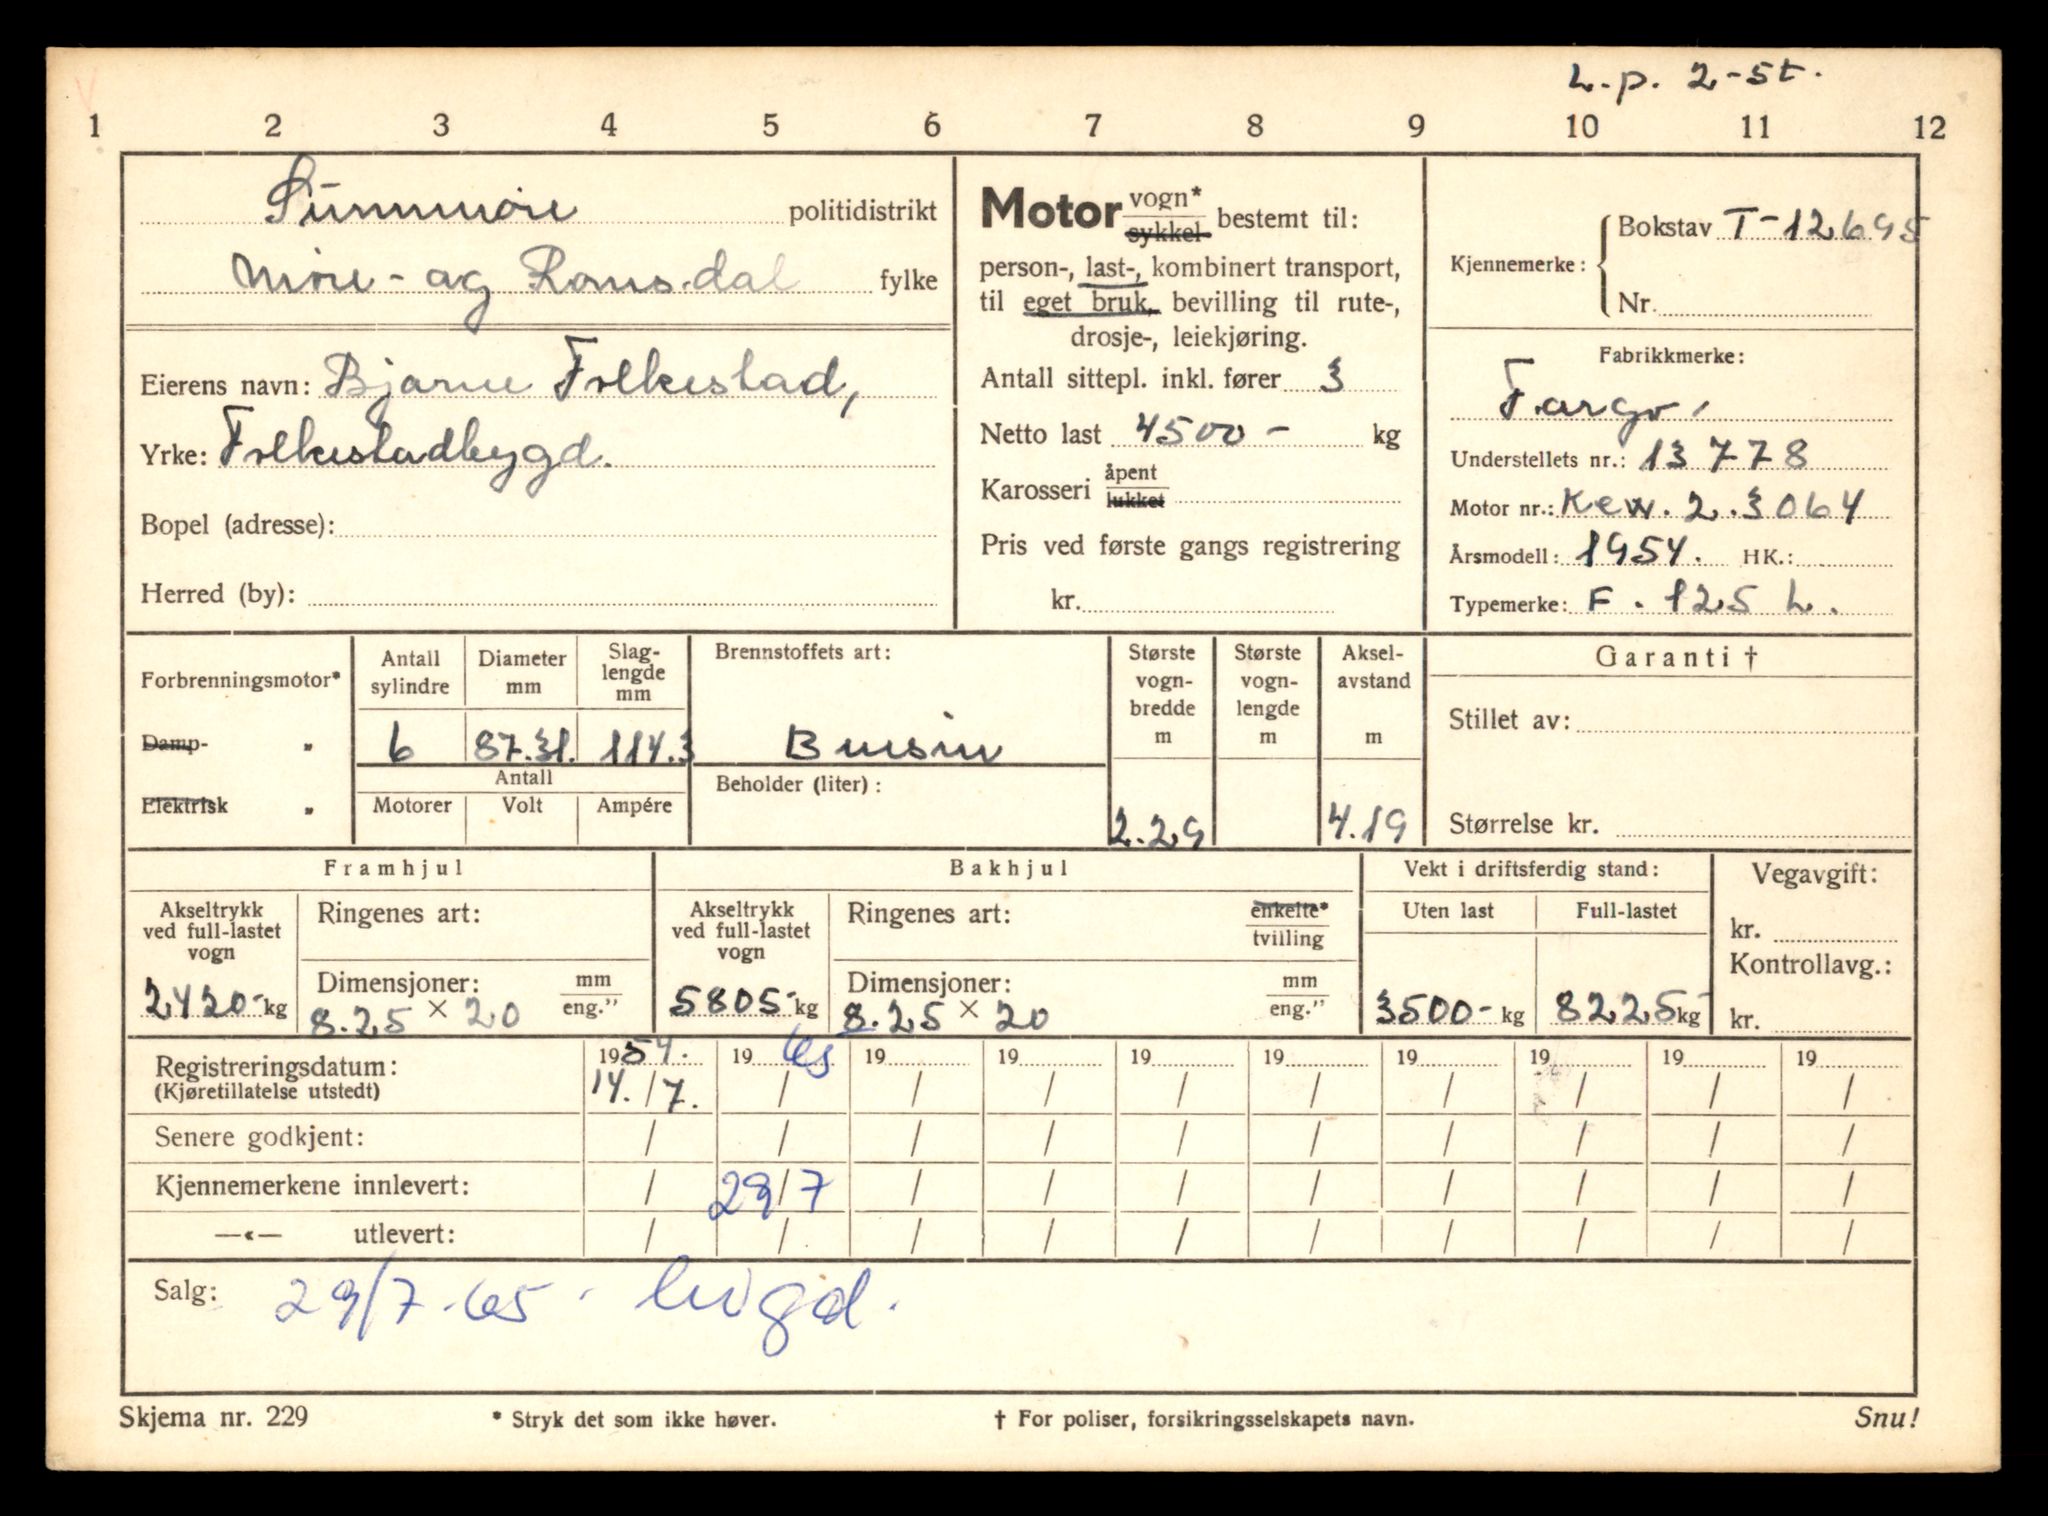 L.p. 2-st.
1 2 3 4 5 6 7 8 9 10 11 12
Sunnmøre politidistrikt
Møre- og Romsdal fylke
Eierens navn: Bjarne Folkestad,
Yrke: Folkestadbygd.
Bopel (adresse):
Herred (by):
Motor vogn* sykkel bestemt til:
person-, last-, kombinert transport,
til eget bruk, bevilling til rute-,
drosje-, leiekjøring.
Antall sittepl. inkl. fører 3
Netto last 4500- kg
Karosseri åpent lukket
Pris ved første gangs registrering
kr.
Kjennemerke: Bokstav T-12695
Nr.
Fabrikkmerke:
Fargo
Understellets nr.: 13778
Motor nr.: Kew. 2.3064
Årsmodell: 1954. HK.:
Typemerke: F. 125 L.
Forbrenningsmotor*
Damp- „
Elektrisk „
Antall sylindre 6
Diameter mm 87.31.
Slaglengde mm 114.3
Antall
Motorer Volt Ampére
Brennstoffets art:
Bensin
Beholder (liter):
Største vogn-bredde m 2.29
Største vogn-lengde m
Aksel-avstand m 4.19
Garanti †
Stillet av:
Størrelse kr.
Framhjul
Akseltrykk ved full-lastet vogn 2420- kg
Ringenes art:
Dimensjoner: mm eng."
8.25 × 20
Bakhjul
Akseltrykk ved full-lastet vogn 5805- kg
Ringenes art: enkelte* tvilling
Dimensjoner: mm eng."
8.25 × 20
Vekt i driftsferdig stand:
Uten last 3500- kg
Full-lastet 8225- kg
Vegavgift:
kr.
Kontrollavg.:
kr.
Registreringsdatum: 1954. 19 65 19 19 19 19 19 19 19 19
(Kjøretillatelse utstedt) 14./7. / / / / / / / / /
Senere godkjent: / / / / / / / / / /
Kjennemerkene innlevert: / 29/7 / / / / / / / /
—«— utlevert: / / / / / / / / / /
Salg: 29/7-65.
Skjema nr. 229 * Stryk det som ikke høver. † For poliser, forsikringsselskapets navn. Snu!